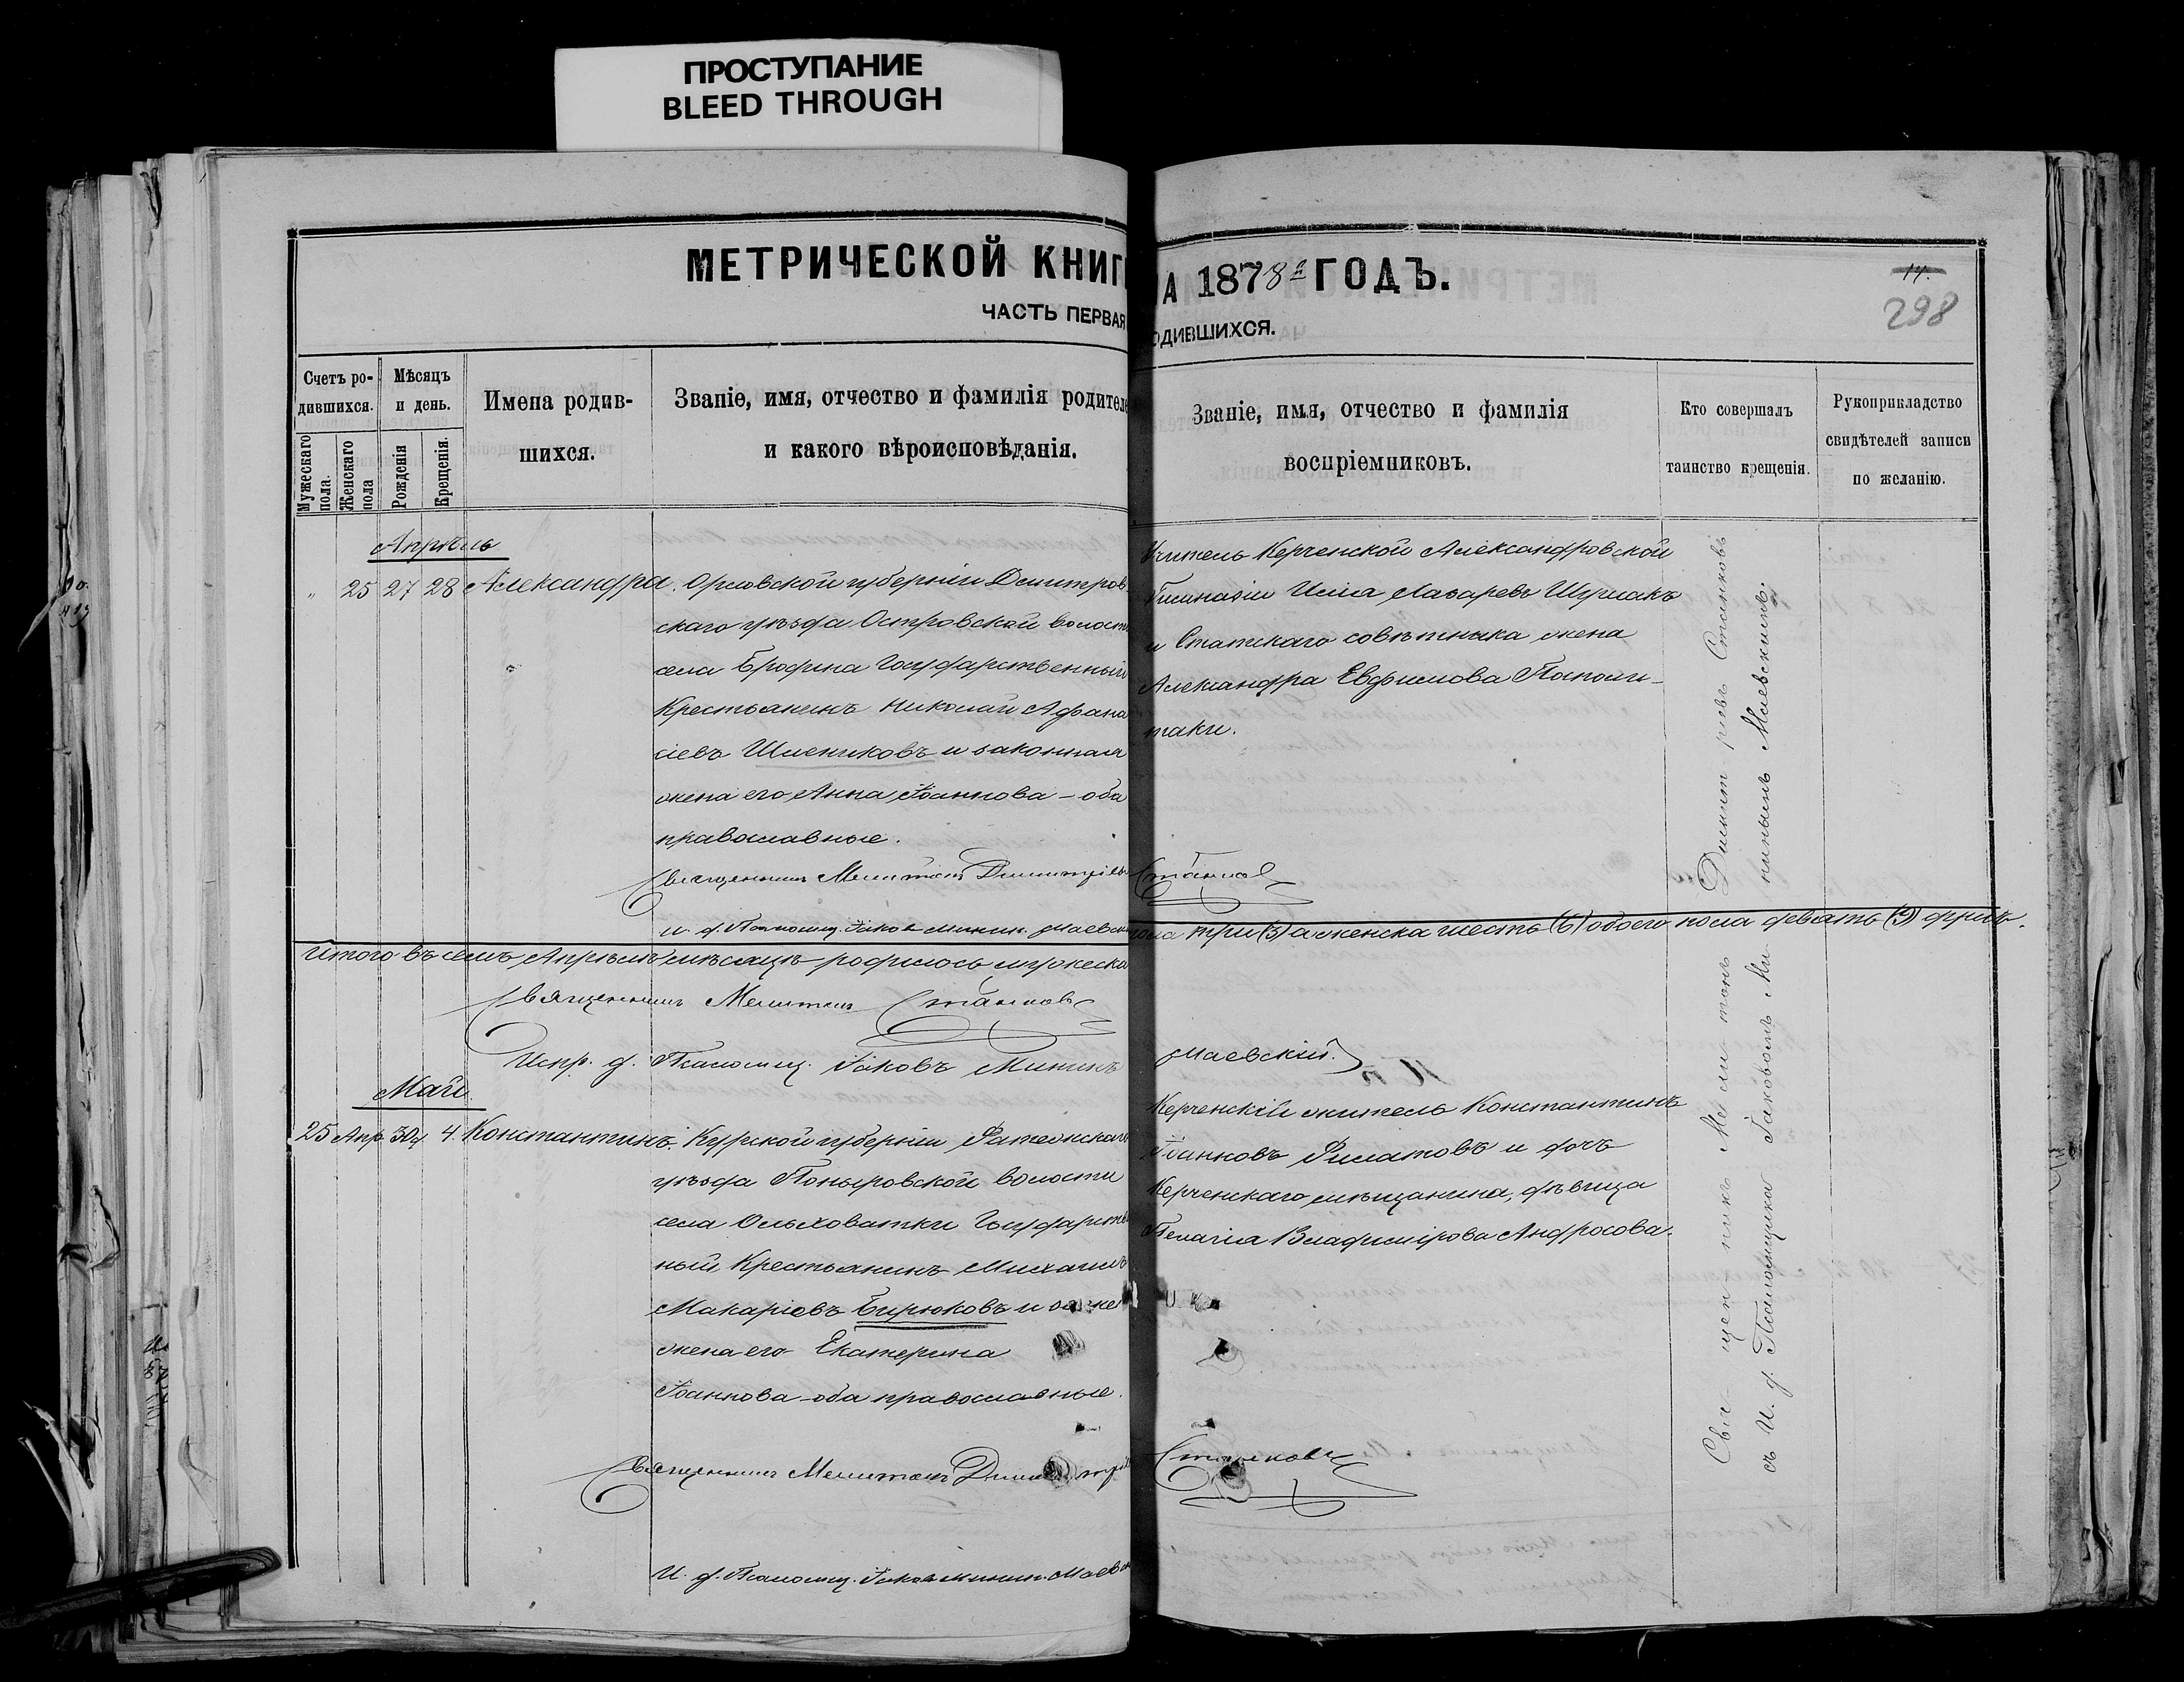 ПРОСТУПАНИЕ
BLEED THROUGH
МЕТРИЧЕСКОЙ КНИГ
ЧАСТЬ ПЕРВАЯ
Счетъ ро-
дившихся.
Мужескаго пола.
Женскаго пола
Мѣсяцъ
и день.
Рожденія
Крещенія.
Имена родив-
шихся.
Званіе, имя, отчество и фамилія родителе
и какого вѣроисповѣданія.
Апрѣль
" 25 27 28 Александра. Орловской губерніи Дмитров
скаго уѣзда Островской волости
села Бродина Государственный
Крестьянинъ Николай Афана
сіевъ Шлениковъ и законная
жена его Анна Іоаннова – оба
православные.
Священникъ Мелитонъ Димитріевъ
и. д. Псаломщ. Іаковъ Минин. Маевск
Итого въ семъ Апрѣлѣ мѣсяцѣ родилось мужеска
Священникъ Мелитонъ Станковъ
Испр. д. Псаломщ. Іаковъ Мининъ
Май
25 Апр. 30 4. Константинъ. Курской губерніи Фатежскаго
уѣзда Поныровской волости
села Ольховатки Государствен
ный Крестьянинъ Михаилъ
Макаріевъ Бирюковъ и
жена его Екатерина
Іоаннова – оба православные.
Священникъ Мелитонъ
И. д. Псаломщ. Іаковъ Минин. Маевск
А 1878й ГОДЪ.
ОДИВШИХСЯ.
14.
298
Званіе, имя, отчество и фамилія
воспріемниковъ.
Кто совершалъ
таинство крещенія.
Рукоприкладство
свидѣтелей записи
по желанію.
Учитель Керченской Александровской
Гимназіи Илія Лазаревъ Шумакъ
и Статскаго совѣтника жена
Александра Евфимова
таки.
Станковъ
пола три (3) а женска шесть (6) обоего пола девять (9) душъ.
Маевскій.
Керченскій житель Константинъ
Іоанновъ Филатовъ и дочь
Керченскаго мѣщанина, дѣвица
Пелагія Владимірова Андросова.
Станковъ
Священникъ Мелитонъ Димитріевъ Станковъ
съ И. д. Псаломщика Іаковомъ Ми
нинымъ Маевскимъ.